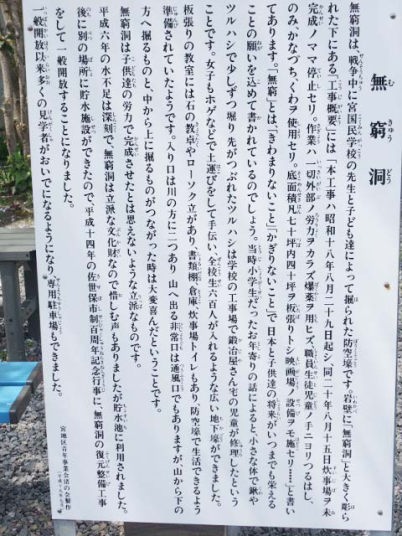 無窮洞
むきゅうどう
無窮洞は、戦争中に宮国民学校の先生と子ども達によって掘られた防空壕です。岩壁に「無窮洞」と大きく彫ら
れた下にある「工事概要」には「本工事ハ昭和十八年八月二十九日起シ、同二十年八月十五日炊事場ヲ未
完成ノママ停止セリ。作業ハ一切外部ノ労力ヲカラズ爆薬ヲ用ヒズ、職員生徒児童ノ手ニヨリつるはし、
のみ、かなづち、くわヲ使用セリ。底面積凡七十坪内四十坪ヲ板張リトシ映画場ノ設備ヲモ施セリ……」と書い
てあります。「無窮」とは「きわまりないこと」「かぎりないこと」で日本と子供達の将来がいつまでも栄える
ことの願いを込めて書かれているのでしょう。当時小学生だったお年寄りの話によると、小さな体で鍬や
ツルハシで少しずつ堀り 先がつぶれたツルハシは学校の工事場で鍛冶屋さん宅の児童が修理したという
ことです。女子もホゲなどで土運びをして手伝い、全校生六百人が入れるような広い地下壕ができました。
板張りの教室には石の教卓やローソク立があり、書類棚、倉庫 炊事場トイレもあり、防空壕で生活できるよう
準備されていたようです。入り口は川の方に二つあり 山へ出る非常口は通風口でもありますが、山から下の
方へ掘るものと、中から上に掘るものがつながった時は大変喜んだということです。
無窮洞は子供達の労力で完成させたとは思えないような立派なものです。
平成六年の水不足は深刻で、無窮洞は立派な文化財なので惜しむ声もありましたが貯水池に利用されました。
後に別の場所に貯水施設ができたので、平成十四年の佐世保市制百周年記念行事に、無窮洞の復元整備工事
をして一般開放することになりました。
一般開放以来多くの見学者がおいでになるようになり、専用駐車場もできました。